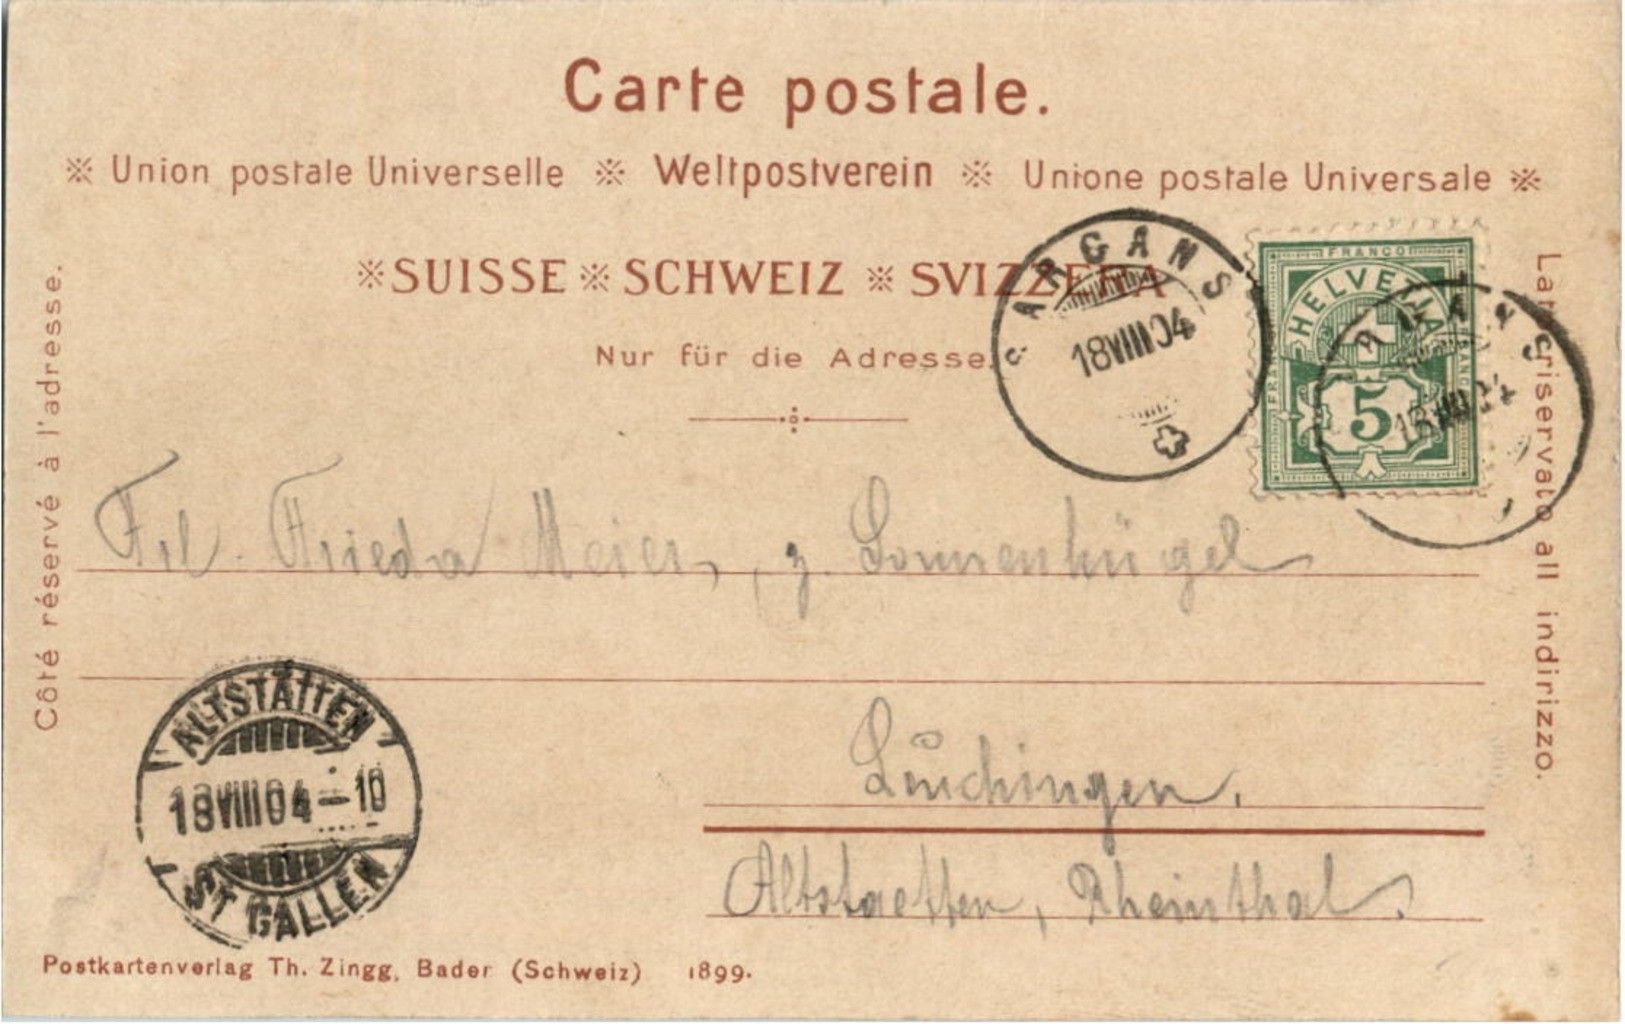 Carte postale.
※ Union postale Universelle ※ Weltpostverein ※ Unione postale Universale ※
※ SUISSE ※ SCHWEIZ ※ SVIZZERA
Nur für die Adresse.
SARGANS
18VIII04
FRANCO
HELVETIA
FRANCO
FRANCO
5
SARGANS
18VIII04
Côté réservé à l'adresse.
Lato riservato all indirizzo.
Frl. Frieda Meier, z. Sonnenhügel
Lüchingen.
Altstaetten, Rheinthal.
ALTSTÄTTEN
18VIII04-10
ST GALLEN
Postkartenverlag Th. Zingg, Bader (Schweiz) 1899.